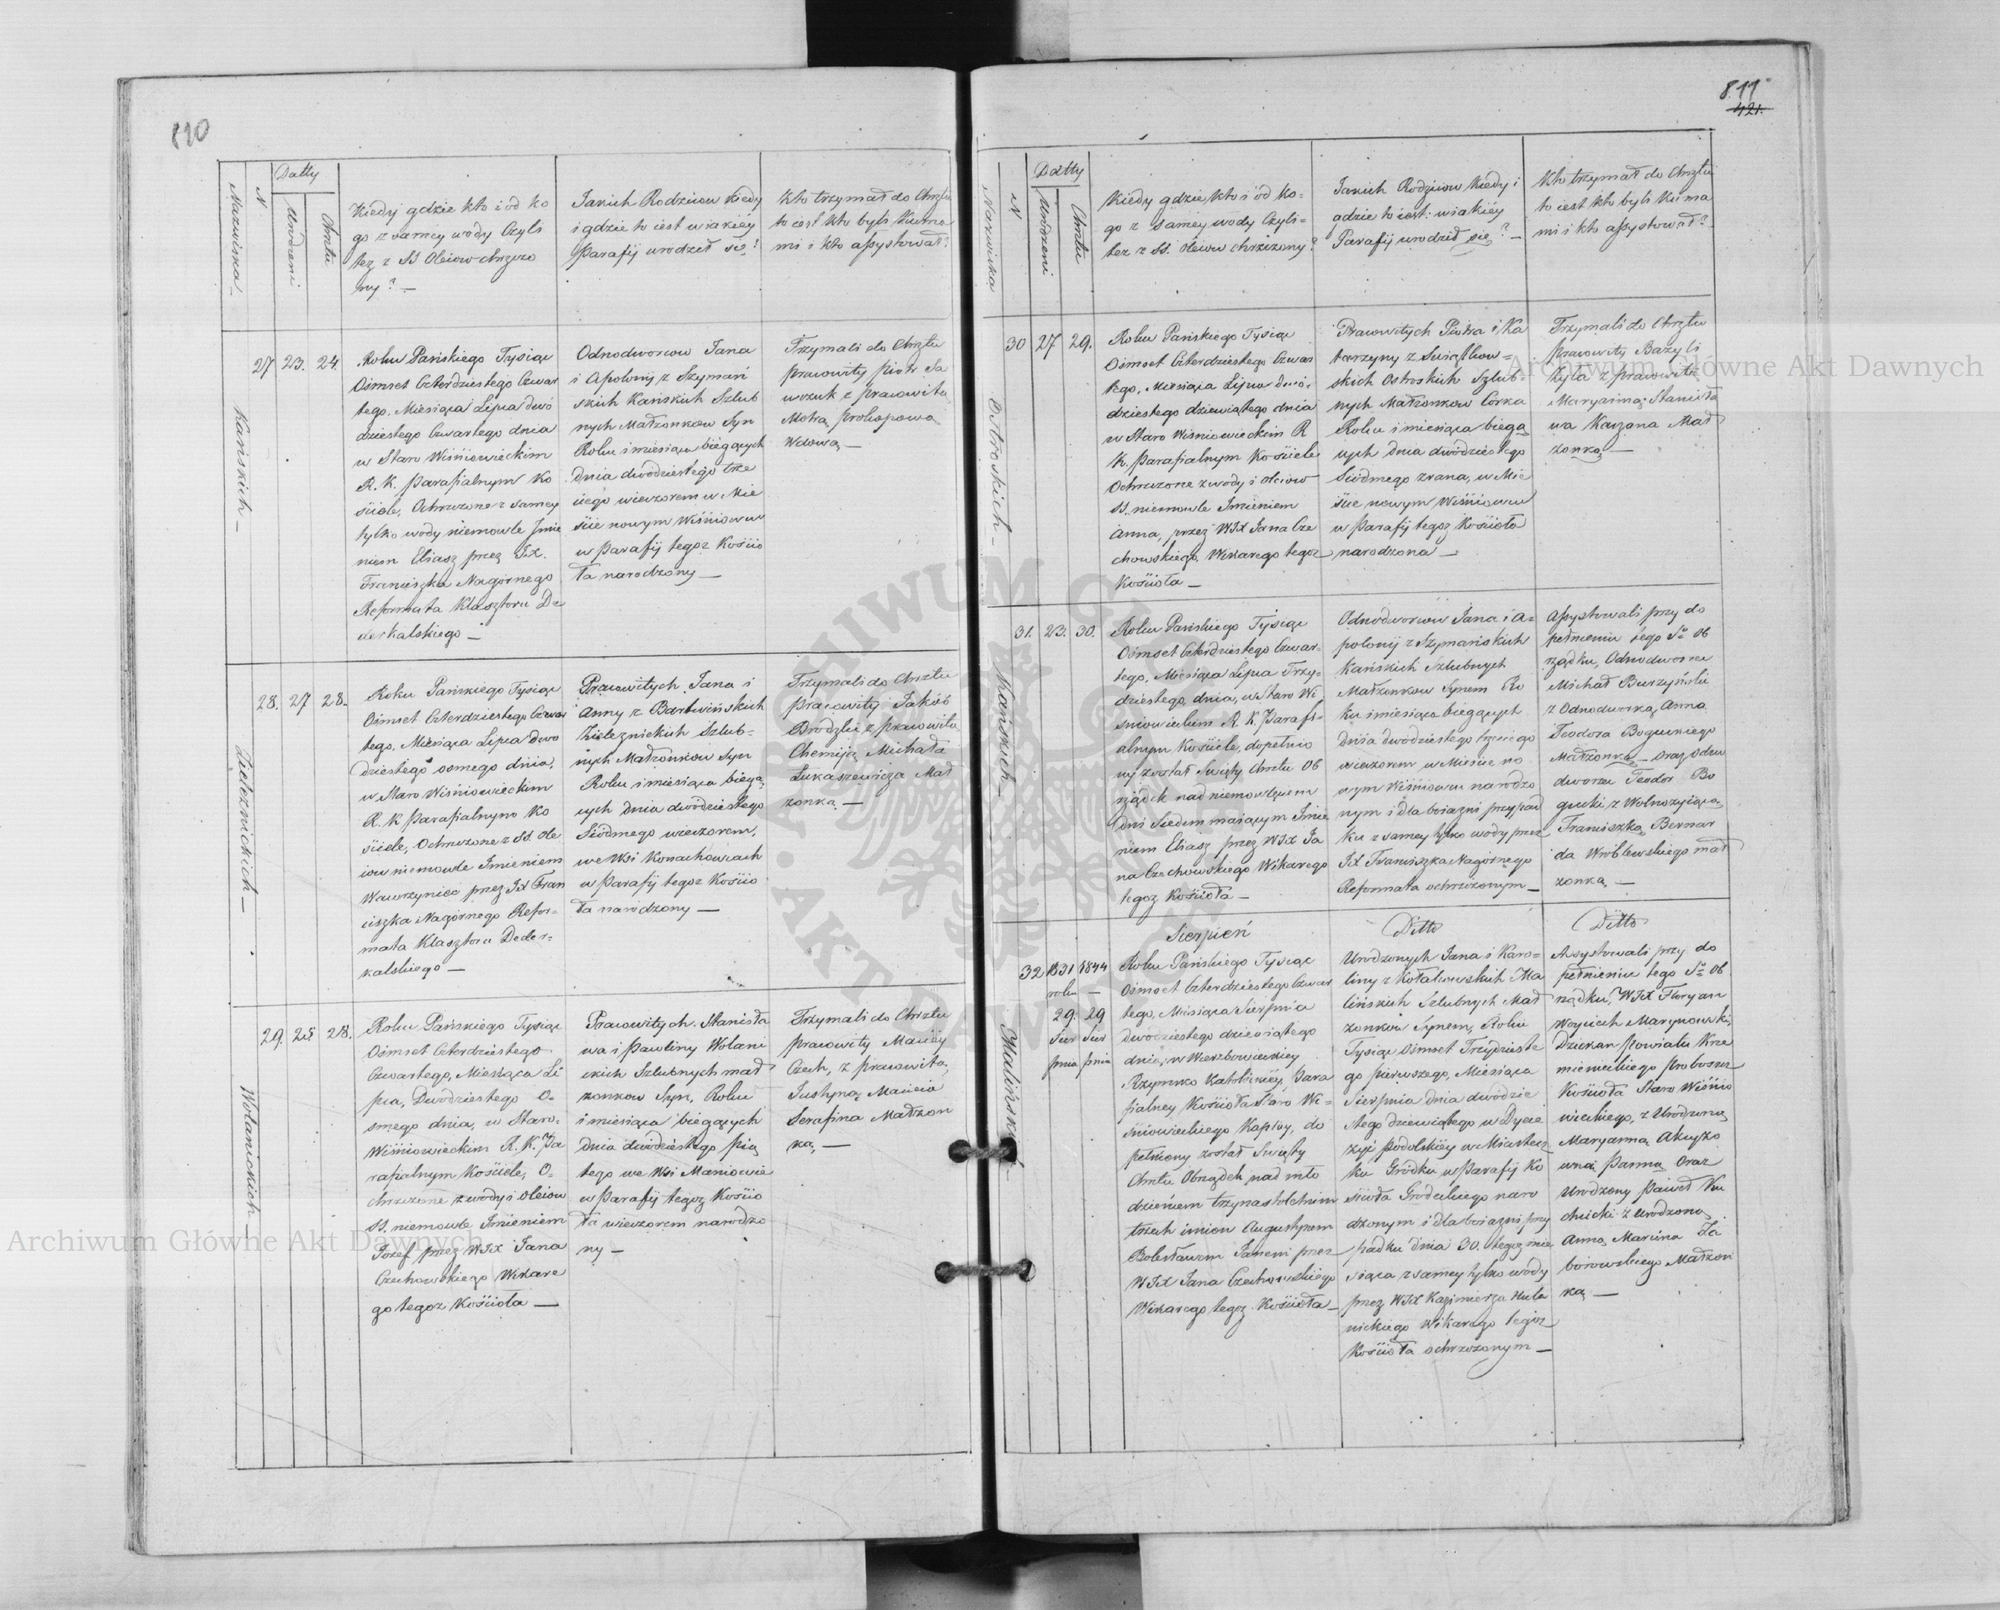 810
Datty
Nazwiska
N
Urodzeni
Chrztu
Kiedy gdzie kto i od ko
go z samey wody Czyli
tez z SS Oleiow chrzczo
ny? —
Jakich Rodzicow kiedy
i gdzie to iest w iakiéy
Parafij urodził się?
Kto trzymał do Chrztu
to iest kto byli Kuma
mi i kto assystował?
27
23.
24.
Kańskich —
Roku Pańskiego Tysiąc
Ośmset Czterdziestego Czwar
tego, Miesiąca Lipca dwó
dziestego Czwartego dnia
w Staro Wiśniowieckim
R. K. Parafialnym Ko
sciele, Ochrzczone z samey
tylko wody niemowle Jmie
niem Eliasz przez JX.
Franciszka Nagórnego
Reformata Klasztoru De
derkalskiego —
Odnodworcow Jana
i Apolonij z Szymań
skich Kańskich Szlub
nych Małżonkow Syn
Roku i miesiąca bieżących
dnia dwódziestego trze
ciego wieczorem w Mie
ście nowym Wiśniowcu
w Parafij tegoz Kościo
ła narodzony —
Trzymali do Chrztu
pracowity Piotr Sa
wczuk z pracowitą
Motrą Prokopową
Wdową —
28.
27
28.
Zieleznickich —
Roku Pańskiego Tysiąc
Ośmset Czterdziestego Czwar
tego, Miesiąca Lipca dwo
dziestego osmego dnia,
w Staro Wiśniowieckim
R. K. Parafialnym Ko
ściele, Ochrzczone z SS. Ole
iow niemowle Jmieniem
Wawrzyniec przez JX Fran
ciszka Nagórnego Refor-
mata Klasztoru Deder-
kalskiego —
Pracowitych Jana i
Anny z Bartwińskich
Zieleznickich Szlub-
nych Małżonkow Syn
Roku i miesiąca bieżą
cych dnia dwódziestego
Siódmego wieczorem,
we Wsi Konachowcach
w Parafij tegoz Kościo
ła narodzony —
Trzymali do Chrztu
Pracowity Jakób
Drodzki z pracowitą
Chemiją Michała
Łukaszewicza Mał
zonką —
29.
25
28.
Wolanickich —
Roku Pańskiego Tysiąc
Ośmset Czterdziestego
Czwartego, Miesiąca Li
pca, Dwodziestego O-
smego dnia, w Staro-
Wiśniowieckim R. K. Pa
rafialnym Kościele, O-
chrzczone z wody i Oleiow
SS. niemowle Jmieniem
Jozef przez WJX Jana
Czechowskiego Wikare
go tegoz Kościoła —
Pracowitych Stanisła
wa i Pauliny Wolani
ckich Szlubnych mał
zonkow Syn, Roku
i miesiąca bieżących
dnia dwódziestego pią
tego we Wsi Maniowie
w Parafij tegoz Kościo
ła wieczorem narodzo
ny —
Trzymali do Chrztu
Pracowity Maciéy
Czech, z pracowitą
Justyną Macieia
Serafina Małzon
ką —
811
421.
Datty
Nazwiska
N
Urodzeni
Chrztu
Kiedy gdzie kto i od ko-
go z samey wody Czyli-
tez z SS. Oleiow chrzczony?
Jakich Rodzicow Kiedy i
gdzie to iest: w iakiéy
Parafij urodził się? —
Kto trzymał do Chrztu
to iest kto byli Kuma
mi i kto assystował? —
30
27
29.
Ostroskich —
Roku Pańskiego Tysiąc
Ośmset Czterdziestego Czwar
tego, Miesiąca Lipca dwó-
dziestego dziewiątego dnia
w Staro Wiśniowieckim R
K. Parafialnym Kościele
Ochrzczone z wody i Oleiow
SS. niemowle Jmieniem
Anna, przez WJX Jana Cze
chowskiego, Wikarego tegoz
Kościoła —
Pracowitych Piotra i Ka
tarzyny z Swiąlkow-
skich Ostroskich Szlub-
nych Małzonkow Córka
Roku i miesiąca bieżą
cych dnia dwódziestego
Siódmego zrana, w Mie
ście nowym Wiśniowcu
w Parafij tegoz Kościoła
narodzona —
Trzymali do Chrztu
pracowity Bazyli
Zyla z pracowitą
Maryanną Stanisła
wa Kaszana Mał
zonką —
31.
23.
30.
Kańskich —
Roku Pańskiego Tysiąc
Ośmset Czterdziestego Czwar-
tego, Miesiąca Lipca Trzy-
dziestego dnia, w Staro Wi-
śniowieckim R. K. Parafi-
alnym Kościele, dopełnio
ny został Swięty Chrztu Ob
rządek nad niemowlęciem
Dni Siedm maiącym Jmie
niem Eliasz przez WJX Ja
na Czechowskiego Wikarego
tegoz Kościoła —
Odnodworcow Jana i A-
polonij z Szymańskich
Kańskich Szlubnych
Małzonkow Synem Ro
ku i miesiąca bieżących
dnia dwódziestego trzeciego
wieczorem w Mieście no
wym Wiśniowcu narodzo
nym i dla boiazni przypad
ku z samey tylko wody przez
JX Franciszka Nagórnego
Reformata ochrzczonym —
Assystowali przy do
pełnieniu tego So Ob
rządku, Odnodworzec
Michał Burzyński
z Odnodworką Anną
Teodora Boguckiego
Małzonką — oraz Odno
dworzec Teodor Bo
gucki z Wolnozyiącą
Franciszką Bernar
da Wróblewskiego mał
zonką —
Sierpień
Ditto
Ditto
32
1831
roku
29.
Sier
pnia
1844
—
29
Sier
pnia
Malińskich —
Roku Pańskiego Tysiąc
Ośmset Czterdziestego Czwar
tego, Miesiąca Sierpnia
dwódziestego dziewiątego
dnia, w Wierzbowieckiey
Rzymsko Katolickiéy, Para
fialney Kościoła Staro Wi-
śniowieckiego Kaplicy, do
pełniony został Swięty
Chrztu Obrządek nad mło
dzieńcem trzynastoletnim
trzech imion Augustynem
Bolesławem Janem przez
WJX Jana Czechowskiego
Wikarego tegoz Kościoła —
Urodzonych Jana i Karo-
liny z Kołakowskich Ma
lińskich Szlubnych Mał
zonkow Synem, Roku
Tysiąc Ośmset Trzydzieste
go pierwszego, Miesiąca
Sierpnia dnia dwódzie
stego dziewiątego w Dyece
zyi Podolskiéy w Miastecz
ku Gródku w Parafij Ko
ścioła Grodeckiego naro
dzonym i dla boiazni przy
padku dnia 30. tegoz mie
siąca z samey tylko wody
przez WJX Kazimierza Hule
nickiego Wikarego tegoz
Kościoła ochrzczonym —
Assystowali przy do
pełnieniu tego So Ob
rządku, WJX Floryan
Woyciech Marynowski,
Dziekan Powiatu Krze
mienieckiego Proboszcz
Kościoła Staro Wiśnio
wieckiego, z Urodzoną
Maryanną
Panną Oraz
Urodzony Paweł Ku
chcicki z Urodzoną
Anną Marcina Za
borowskiego Małzon
ką —
Archiwum Główne Akt Dawnych
Archiwum Główne Akt Dawnych